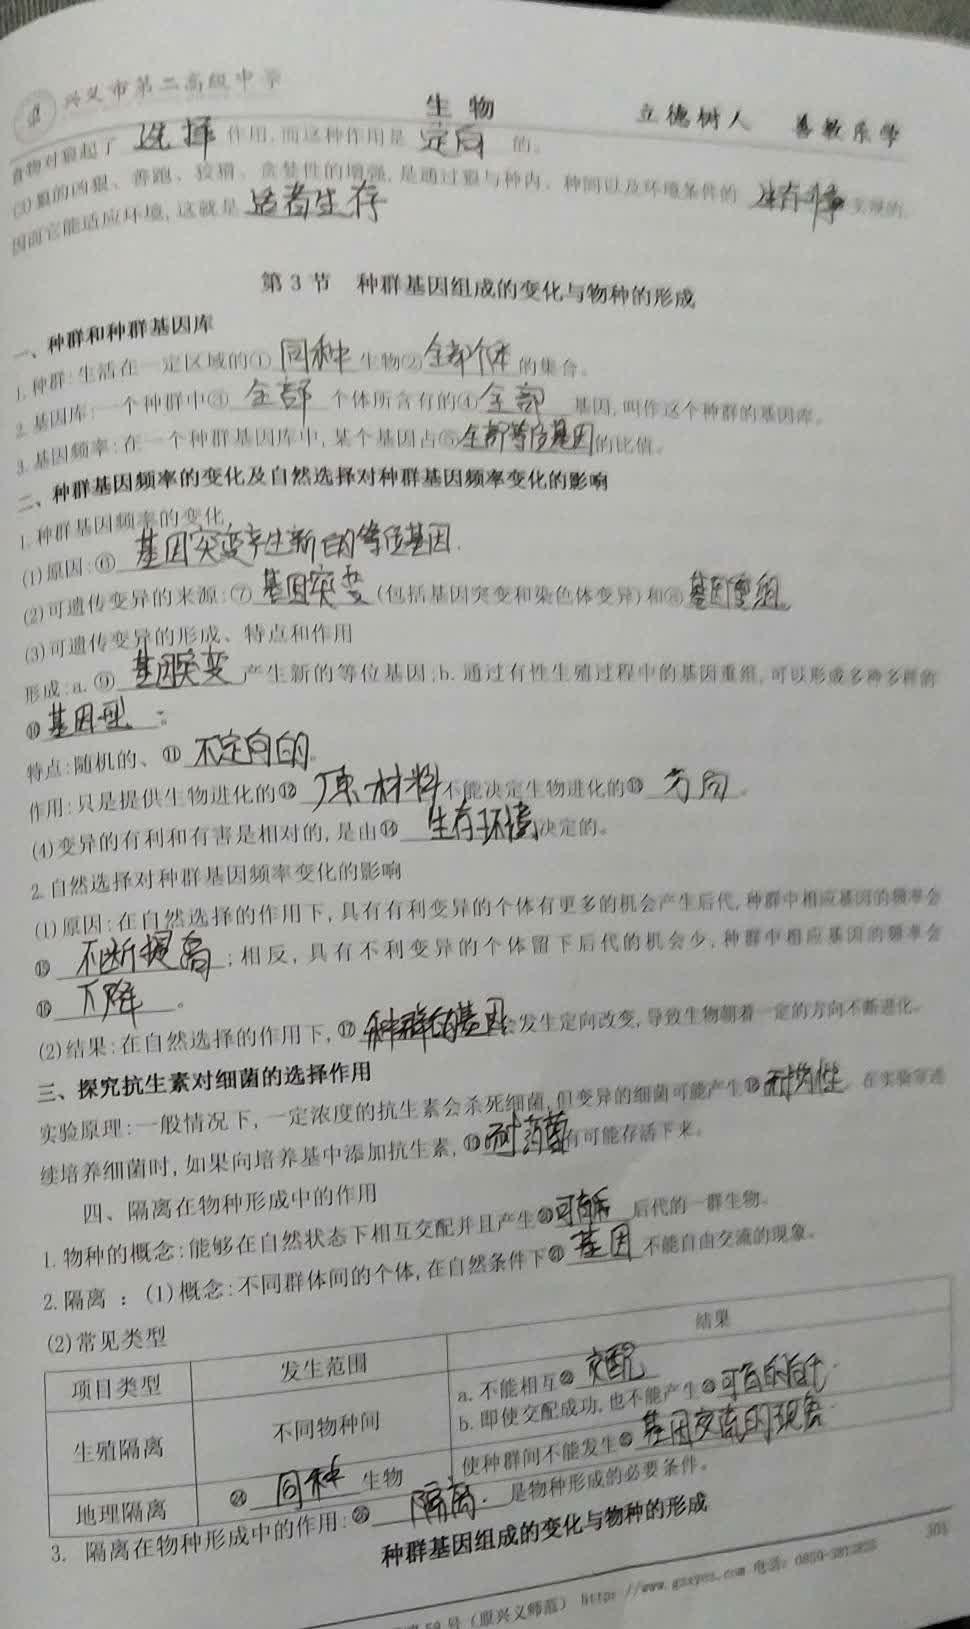 兴义市第二高级中学 生物 立德树人 善教乐学
食物对狼起了 选择 作用,而这种作用是 定向 的。
(3)狼的凶狠、善跑、狡猾、贪婪性的增强,是通过狼与种内、种间以及环境条件的 生存斗争 实现的,
因而它能适应环境,这就是 适者生存
第3节 种群基因组成的变化与物种的形成
一、种群和种群基因库
1.种群:生活在一定区域的① 同种 生物② 全部个体 的集合。
2.基因库:一个种群中③ 全部 个体所含有的④ 全部 基因,叫作这个种群的基因库。
3.基因频率:在一个种群基因库中,某个基因占⑤ 全部等位基因 的比值。
二、种群基因频率的变化及自然选择对种群基因频率变化的影响
1.种群基因频率的变化
(1)原因:⑥ 基因突变产生新的等位基因.
(2)可遗传变异的来源:⑦ 基因突变 (包括基因突变和染色体变异)和⑧ 基因重组。
(3)可遗传变异的形成、特点和作用
形成:a.⑨ 基因突变 产生新的等位基因;b.通过有性生殖过程中的基因重组,可以形成多种多样的
⑩ 基因型 ;
特点:随机的、⑪ 不定向的。
作用:只是提供生物进化的⑫ 原材料 不能决定生物进化的⑬ 方向 。
(4)变异的有利和有害是相对的,是由⑭ 生存环境 决定的。
2.自然选择对种群基因频率变化的影响
(1)原因:在自然选择的作用下,具有有利变异的个体有更多的机会产生后代,种群中相应基因的频率会
⑮ 不断提高 ;相反,具有不利变异的个体留下后代的机会少,种群中相应基因的频率会
⑯ 下降 。
(2)结果:在自然选择的作用下,⑰ 种群的基因 会发生定向改变,导致生物朝着一定的方向不断进化。
三、探究抗生素对细菌的选择作用
实验原理:一般情况下,一定浓度的抗生素会杀死细菌,但变异的细菌可能产生⑱ 耐药性 。在实验室连
续培养细菌时,如果向培养基中添加抗生素,⑲ 耐药菌 有可能存活下来。
四、隔离在物种形成中的作用
1.物种的概念:能够在自然状态下相互交配并且产生⑳ 可育 后代的一群生物。
2.隔离 :(1)概念:不同群体间的个体,在自然条件下㉑ 基因 不能自由交流的现象。
(2)常见类型
项目类型 发生范围 结果
生殖隔离 不同物种间 a.不能相互㉒ 交配
b.即使交配成功,也不能产生㉓ 可育的后代.
地理隔离 ㉔ 同种 生物 使种群间不能发生㉕ 基因交流的现象.
3. 隔离在物种形成中的作用:㉖ 隔离. 是物种形成的必要条件。
种群基因组成的变化与物种的形成
59号(原兴义师范)